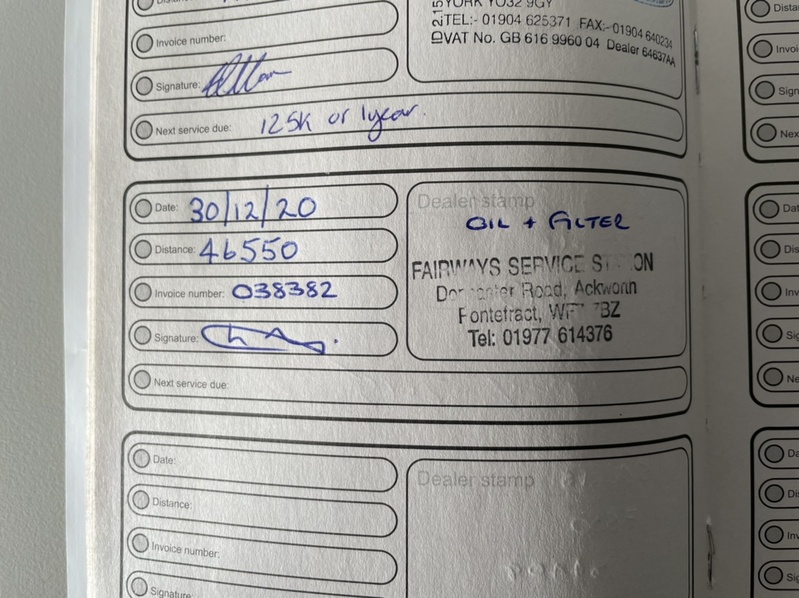 Invoice number:
YORK YO32 9GY
TEL:- 01904 625371 FAX:- 01904 640234
VAT No. GB 616 9960 04 Dealer 64637AA
Signature:
Next service due: 125K or 1year.
Date: 30/12/20
Dealer stamp
OIL + FILTER
Distance: 46550
FAIRWAYS SERVICE
Invoice number: 038382
Road, Ackworth
Pontefract,
Signature:
Tel: 01977 614376
Next service due:
Date:
Dealer stamp
Distance:
Invoice number:
Signature
Dista
Invoi
Sign
Nex
Dat
Dis
Inv
Sig
Ne
Da
Di
Inv
Sig